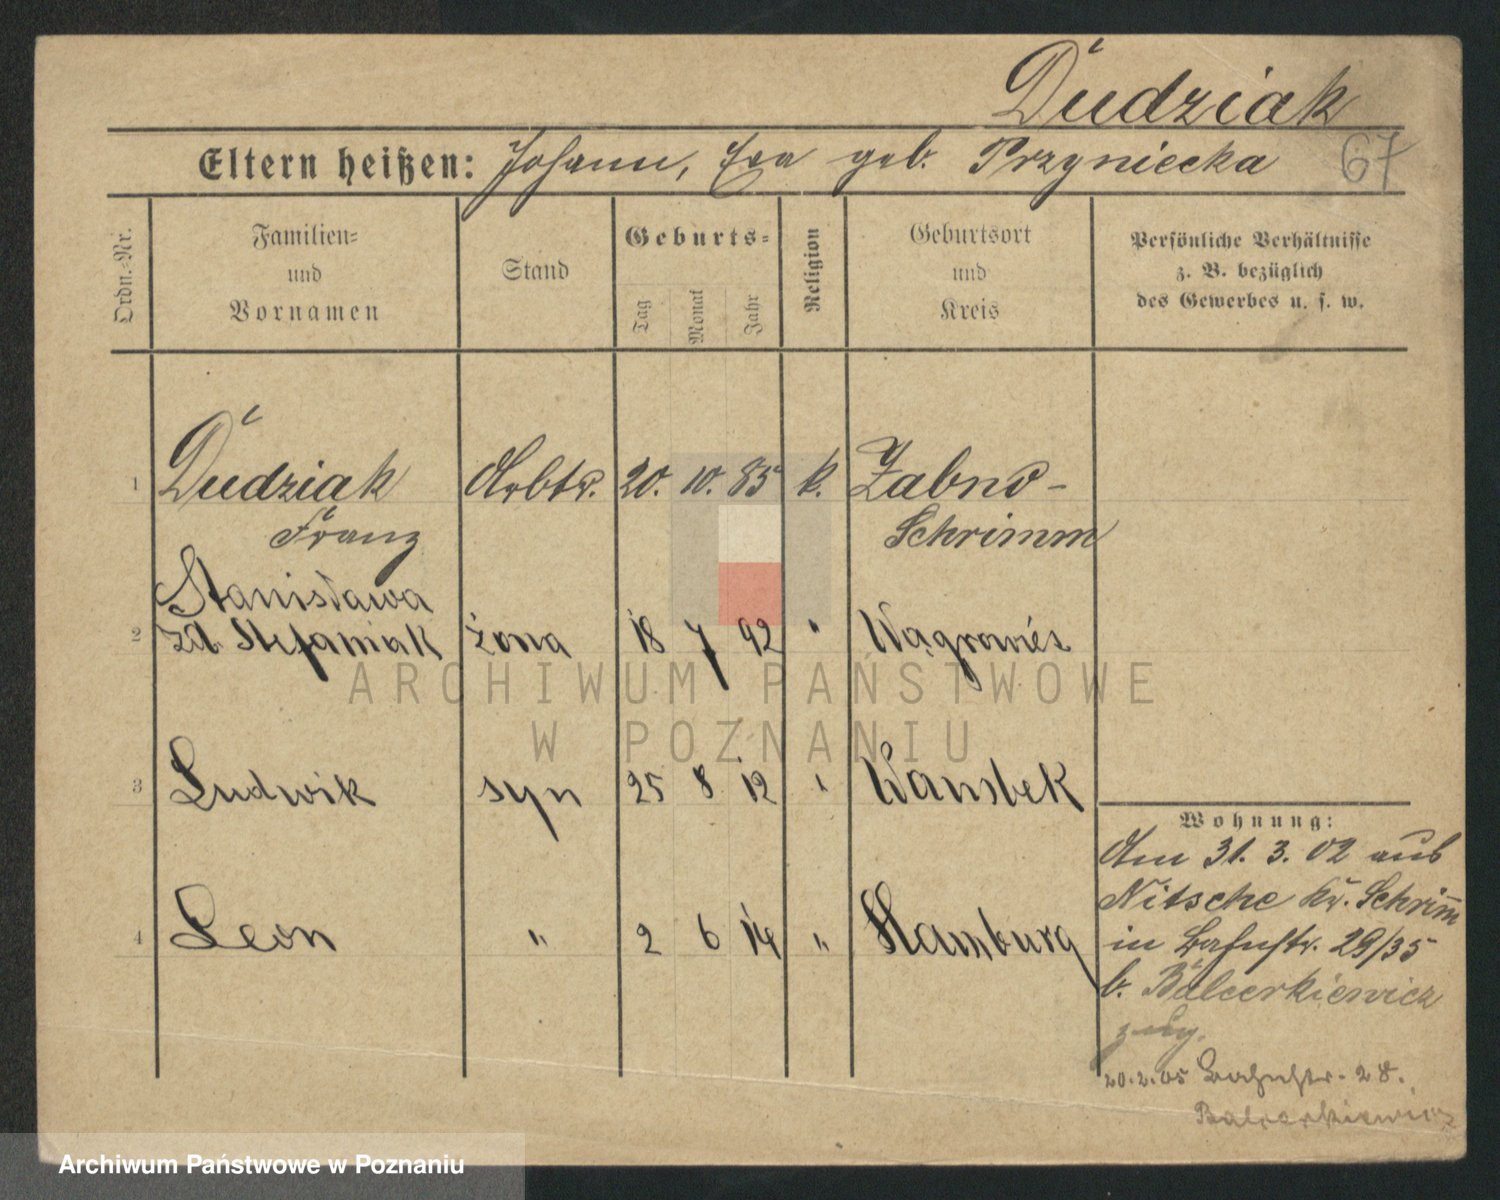 Dudziak
Eltern heißen: Johann, Eva geb. Przyniecka 67
Ordn.-Nr.
Familien-
und
Vornamen
Stand
Geburts-
Tag
Monat
Jahr
Religion
Geburtsort
und
Kreis
Persönliche Verhältnisse
z. B. bezüglich
des Gewerbes u. s. w.
1 Dudziak Arbtr. 20. 10. 85 k. Zabno-
Franz Schrimm
Stanisława
2 zd. Stefaniak żona 18 7 92 " Wągrowiés
3 Ludwik syn 25 8 12 " Wansbek
4 Leon " 2 6 14 " Hamburg
Wohnung:
Am 31. 3. 02 aus
Nitsche Kr. Schrim̅
in Bahnstr. 29/35
b. Balcerkiewicz
zug.
20.2.05 Bahnstr. 28.
Balcerkiewicz
ARCHIWUM PAŃSTWOWE
W POZNANIU
Archiwum Państwowe w Poznaniu